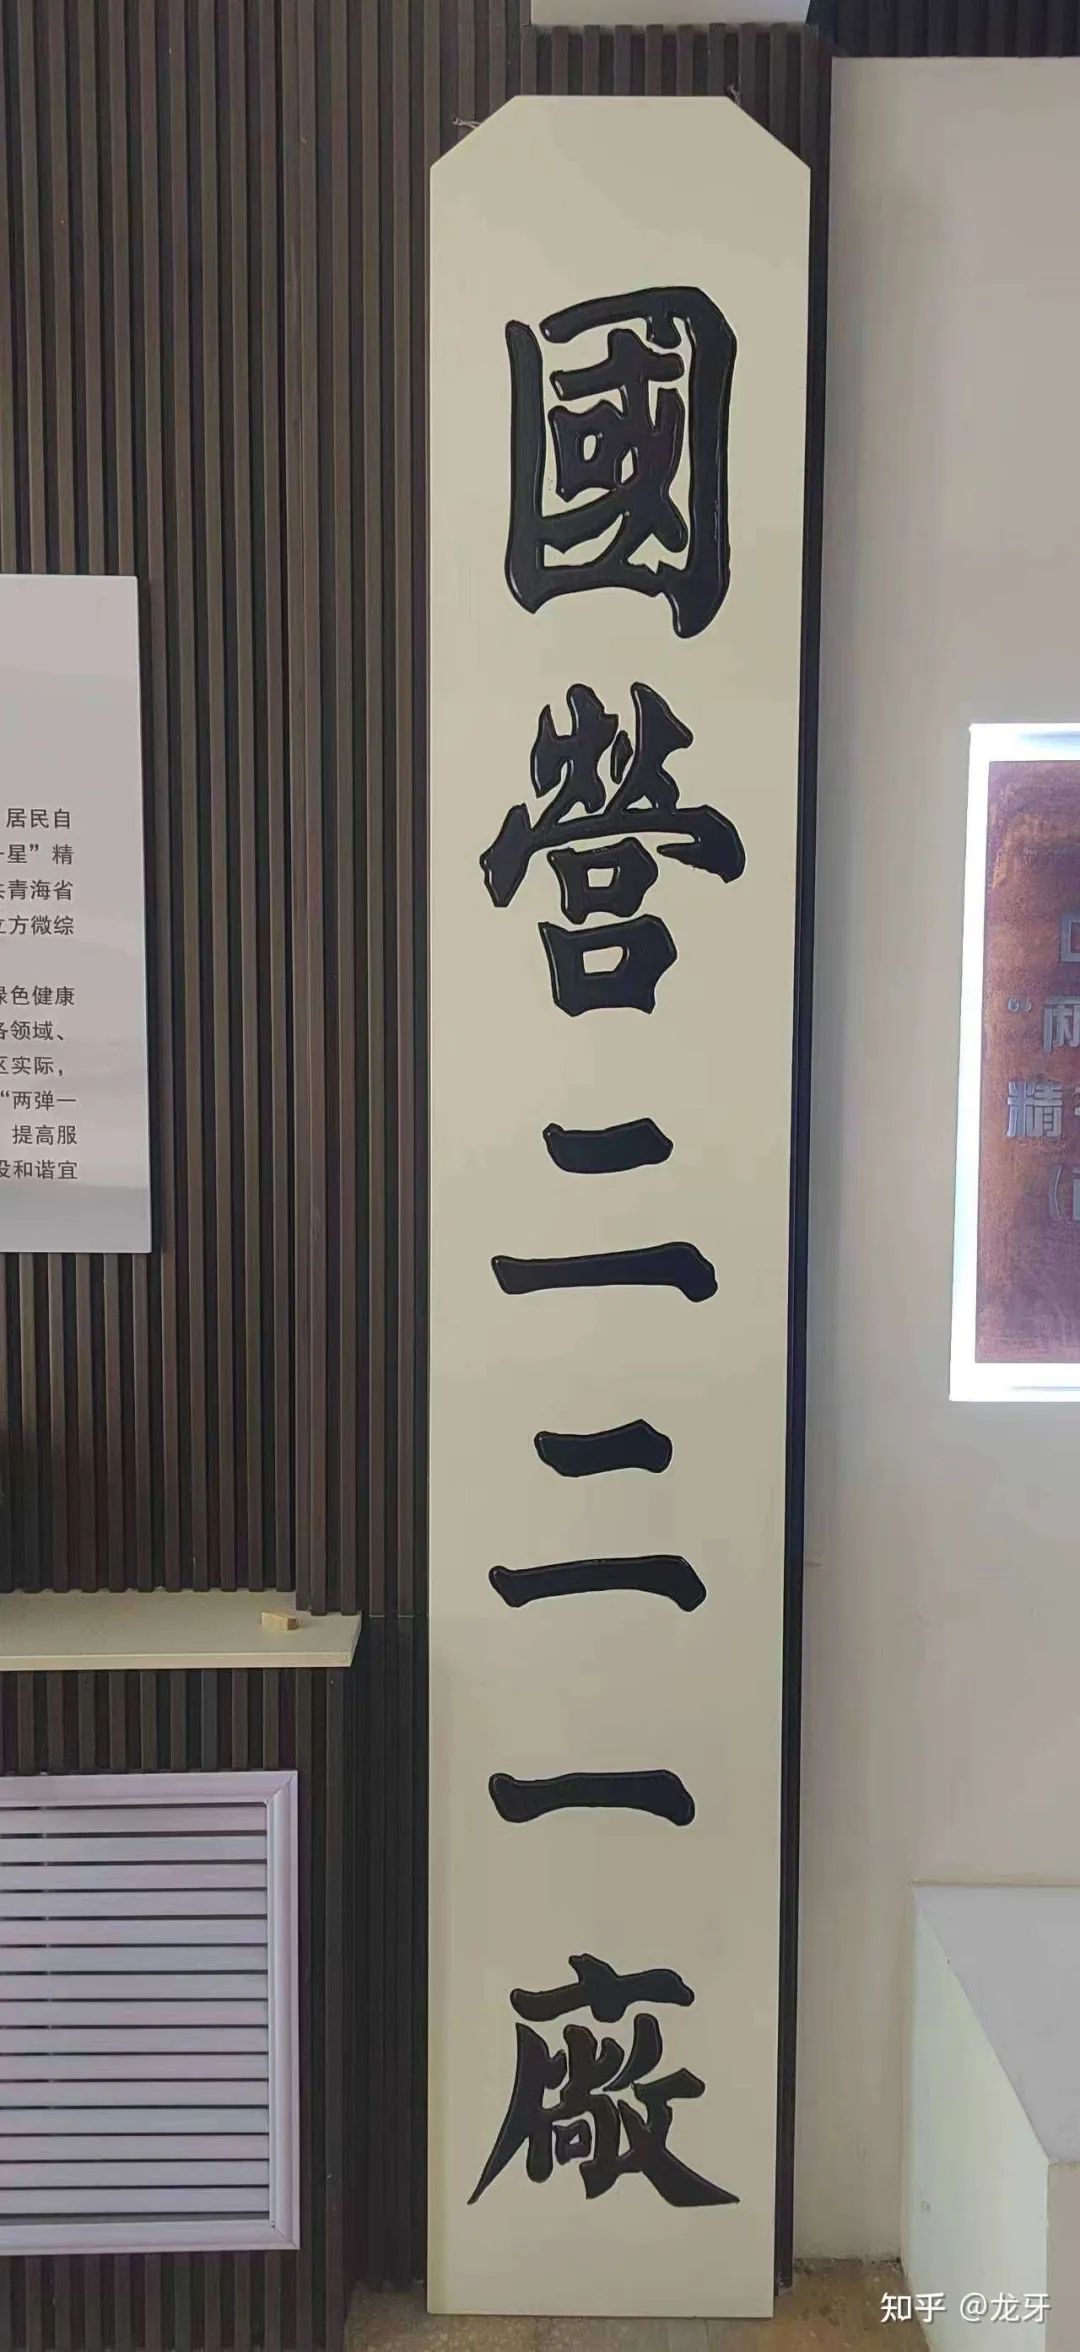 國營二二一廠
居民自
一星”精
共青海省
立方微综
绿色健康
各领域、
区实际，
“两弹一
提高服
设和谐宜
“两
精
知乎 @龙牙